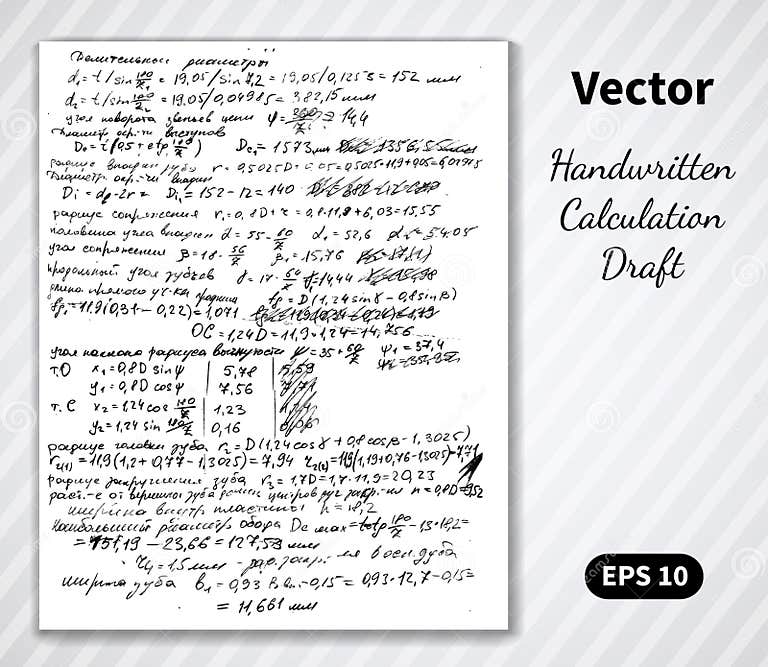 Делительные диаметры
d₁ = t/sin 180/z₁ = 19,05/sin 7,2 = 19,05/0,1253 = 152 мм
d₂ = t/sin 180/z₂ = 19,05/0,04985 = 382,15 мм
угол поворота звеньев цепи φ = 360/z₁ = 14,4
Диаметр окр-ти выступов
De = t(0,5 + ctg 180/z) De₁ = 157,3 мм
радиус впадин зуба r = 0,5025D + 0,05 = 0,5025·11,9+0,05=
Диаметр окр-ти впадин
Di = d₂-2r = Di₁ = 152-12 = 140
радиус сопряжения r₁ = 0,8D + r = 0,8·11,9 + 6,03 = 15,55
половина угла впадин α = 55 - 60/z α₁ = 52,6 α = 54.05
угол сопряжения β = 18 - 56/z β₁ = 15,76
продольный угол зубков γ = 17 - 64/z γ₁ = 14,44
длина прямого уч-ка профиля fg = D(1,24 sinγ - 0,8 sinβ)
fg₁ = 11,9(0,31 - 0,22) = 1,071
OC = 1,24D = 11,9·1,24 = 14,756
угол наклона радиуса выпуклости ψ = 35 + 60/z ψ₁ = 37,4
т.О x₁ = 0,8D sinψ 5,78 5,59
y₁ = 0,8D cosψ 7,56
т. С x₂ = 1,24 cos 180/z 1,23
y₂ = 1,24 sin 180/z 0,16
радиус головки зуба r₂ = D(1,24 cosγ + 0,8 cosβ - 1,3025)
r₂₍₁₎ = 11,9(1,2 + 0,77 - 1,3025) = 7,94 r₂₍₂₎ = 11,9(1,19+0,76-1,3025) = 7,71
радиус закругления зуба r₃ = 1,7D = 1,7·11,9 = 20,23
раст-е от вершины зуба h = 0,8D = 9,52
ширина внутр пластины h = 18,2
Наибольший диаметр обода Dc max = t ctg 180/z - 1,3·18,2 =
= 151,19 - 23,66 = 127,53 мм
r₄ = 1,5 мм - рад. закр-ия в осн. зуба
ширина зуба b₁ = 0,93 Bвн - 0,15 = 0,93·12,7 - 0,15 =
= 11,661 мм
Vector
Handwritten
Calculation
Draft
EPS 10